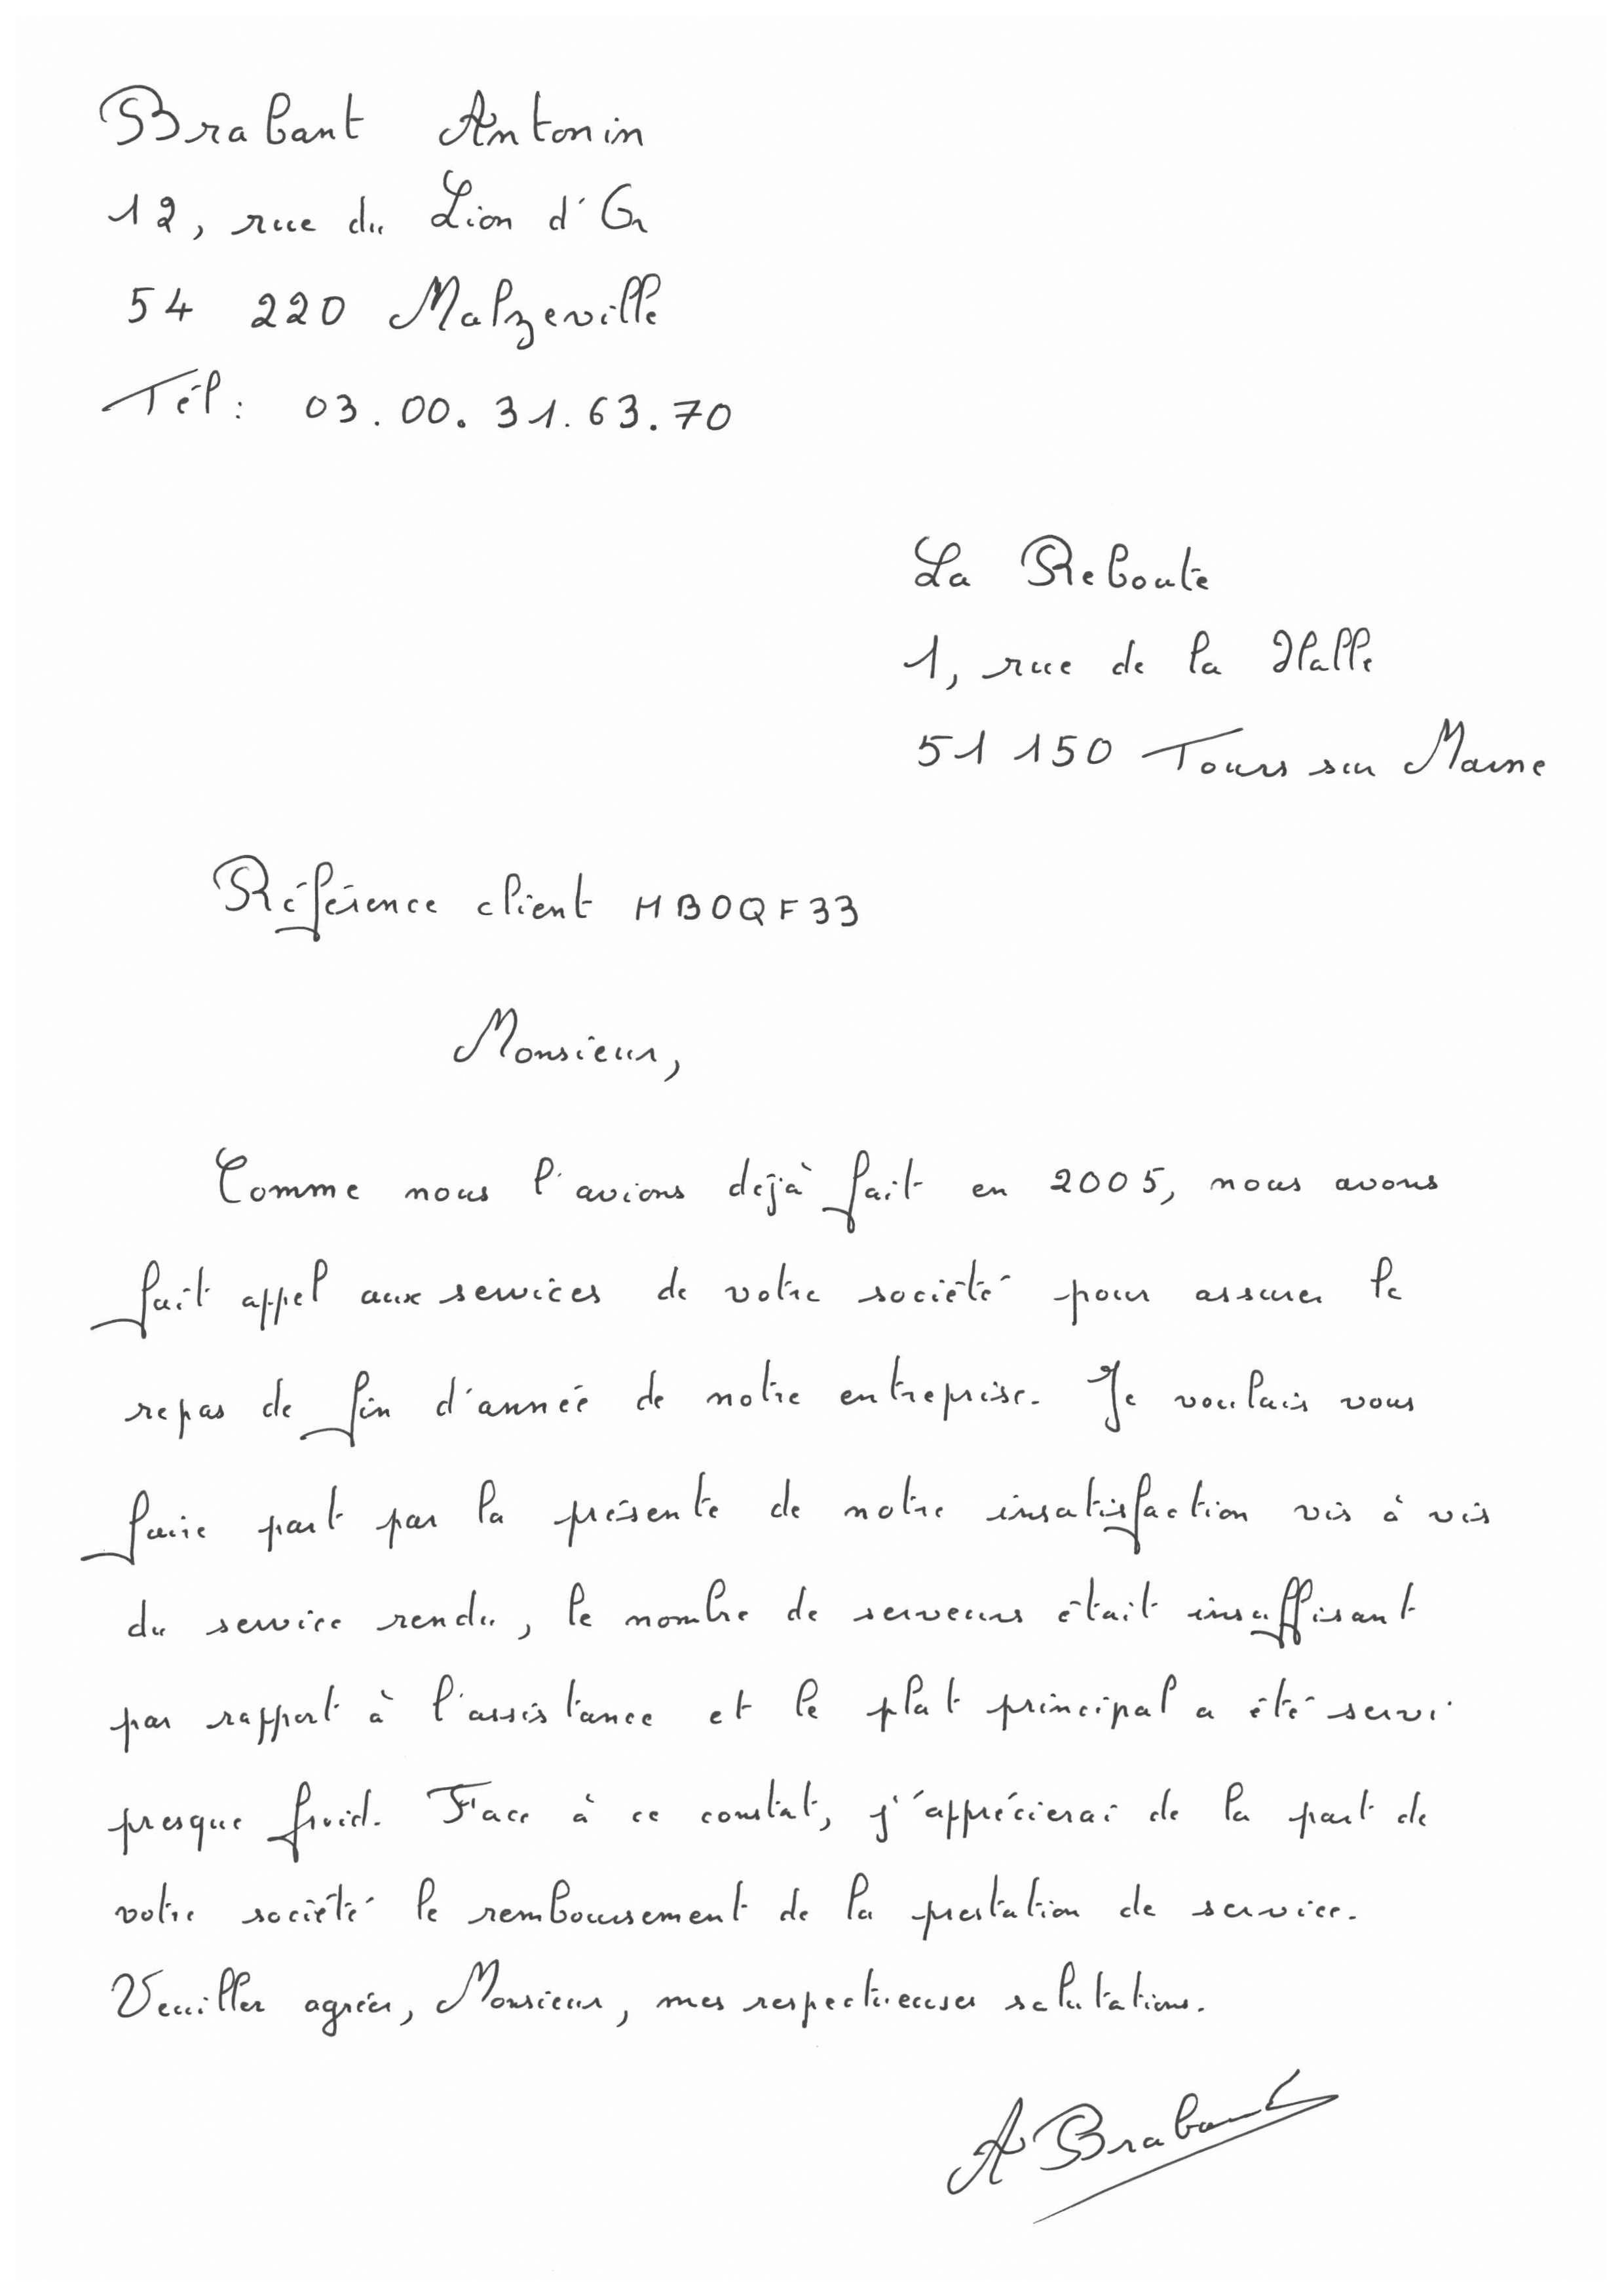 Brabant Antonin
12, rue du Lion d'Or
54 220 Malzeville
Tél : 03.00.31.63.70
La Reboute
1, rue de la Halle
51 150 Tours sur Marne
Référence client HBOQF33
Monsieur,
Comme nous l'avions déjà fait en 2005, nous avons
fait appel aux services de votre société pour assurer le
repas de fin d'année de notre entreprise. Je voulais vous
faire part par la présente de notre insatisfaction vis à vis
du service rendu, le nombre de serveurs était insuffisant
par rapport à l'assistance et le plat principal a été servi
presque froid. Face à ce constat, j'apprécierai de la part de
votre société le remboursement de la prestation de service.
Veuiller agréer, Monsieur, mes respectueuses salutations.
A Brabant